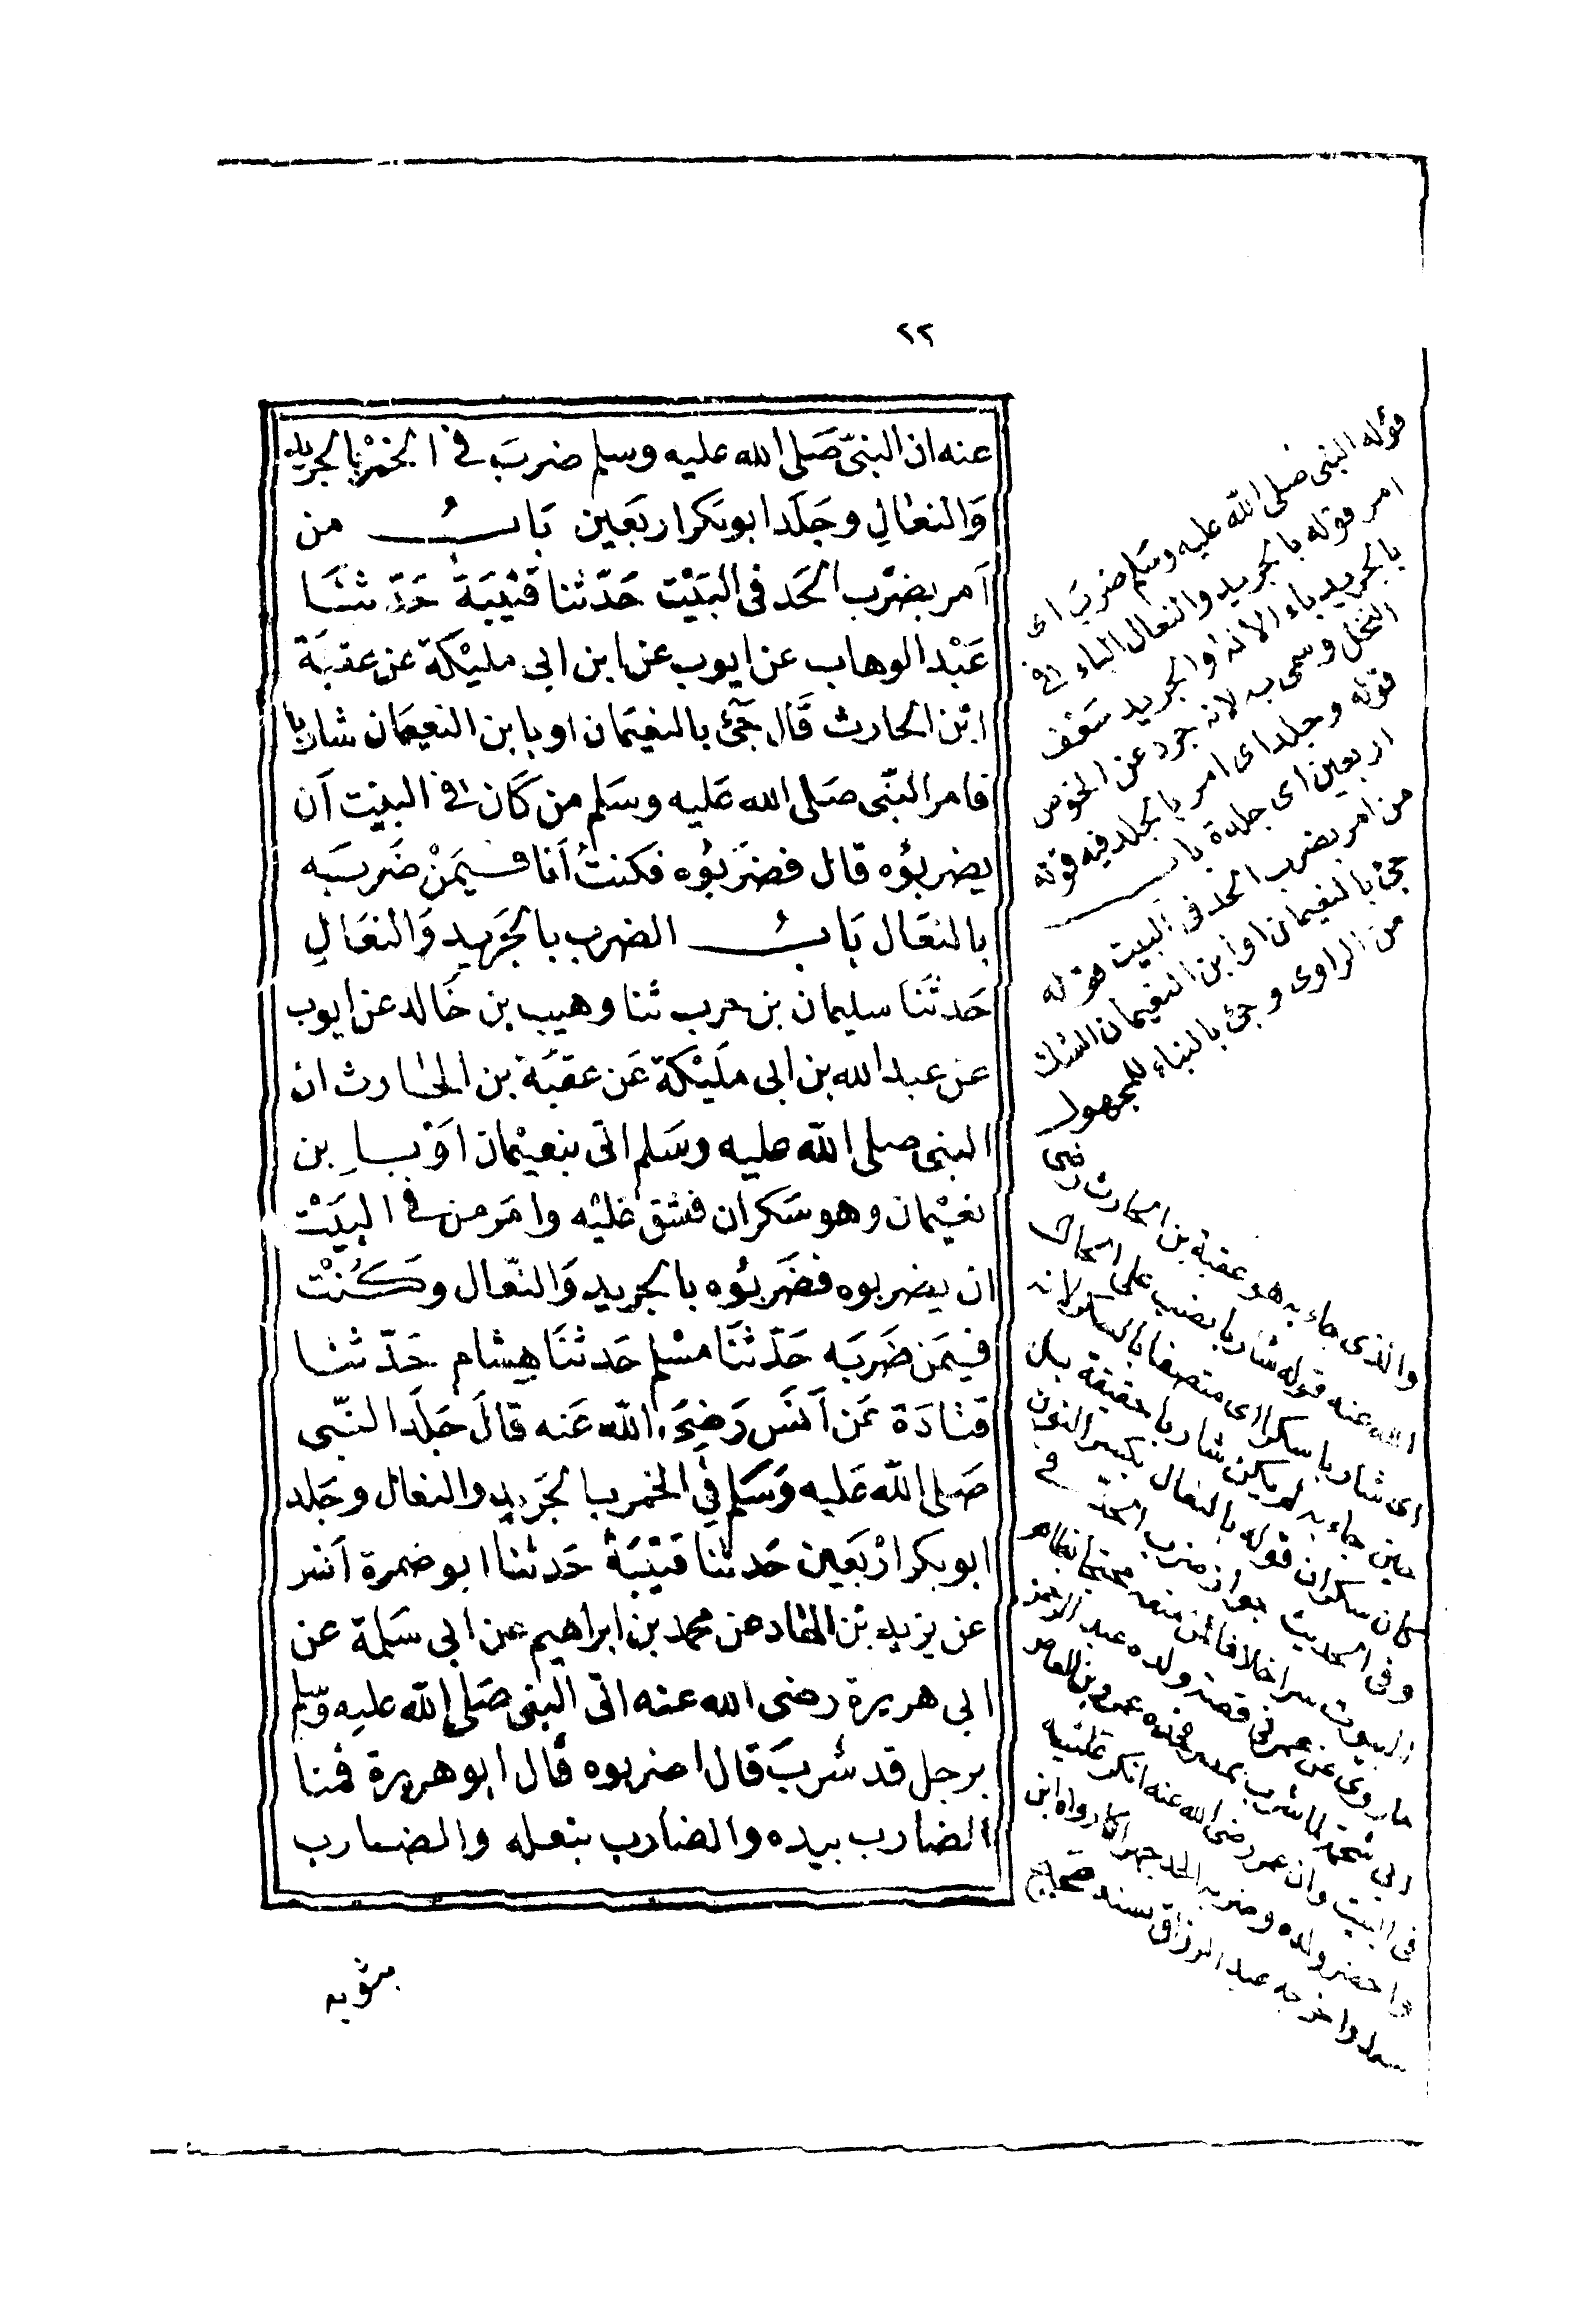 ٢٢
عنه ان النبىّ صَلى الله عليه وسلم ضربَ فى الخمْر بالجريد
وَالنعالِ وجَلَد ابو بَكر اربَعَين بَابُ من
اَمر بضرْب الحَد فى البَيْت حَدّثنا قتيْبَة حَدّ ثنَا
عَبْد الوهاب عن ايوب عن ابن ابى مليْكة عن عقبَة
ابْن الحارث قَال جَئ بالنعيمَان او بابن النعيمَان شاربا
فامر النّبى صَلى الله عَليه وسَلم من كَان فى البيْت اَن
يضربُوه قال فضرَبُوه فكنتُ اَنا فيمَنْ ضَربَه
بالنعَال بَابُ الضرب بالجَريد وَالنعَالِ
حَدثَنا سليمان بن حرب ثنا وهيب بن خَالد عن ايوب
عن عبد الله بن ابى ملَيْكة عَن عقبَة بن الحَارث ان
النبى صلى اللّه عليه وسَلم اتى بنعيْمان اَوْ بابن
نعيْمان وهو سَكران فشق عَليْه وامَر من فى البيَتْ
ان يضربوه فضَربُوه بالجَريد وَالنّعال وكَنُتْ
فيمَن ضَربَه حَدّثنَا مسْلم حَدثنَا هِشام حَدّ ثنا
قتادَة عَن اَنَس رَضىَ اللّه عَنه قالَ جَلَد النّبى
صَلى اللّه عَليه وَسَلم فِي الخمر بالجَريد والنعال وجَلد
ابو بكر ارْبَعَين حَدثنا قتيْبَةُ حَدثنا ابو ضمرة اَنس
عن يزيد بْن الهَاد عن محمد بن ابراهيم عن ابى سَلمة عن
ابي هريرة رضى الله عنه اتى النبى صَلى اللّه عليه وَسلم
برجل قد شربَ قال اضربوه قال ابو هريرة فمنا
الضارب بيده والضارب بنعله والضارب
بثوبه
قوله النبى صلى اللّه عليه وسَلم ضربَ اى
امر قوله بالجريد والنعال الباء فى
بالجريد باء الآلة والجريد سَعَف
النخل وسمى به لانه جرد عن الخوص
قوله وجلد اى امر بالجلد فيه قوله
اربعين اى جلدة باب
من امر بضرب الحد فى البيت قوله
جئ بالنعيمان او ابن النعيمان الشك
من الراوى وجئ بالبناء للمجهول
والذى جاء به هو عقبة بن الحارث رضى
الله عنه قوله شاربا بنصب على الحال
اى شاربا سكرا اى متصفا بالسكر لانه
حين جاء به لم يكن شاربا حقيقة بل
كان سكران قوله بالنعال بكسر النون
وفى الحديث جواز ضرب الحدّ فى
البيوت سرا خلافا لمن منعه محتجا بظاهر
ما روى عن عمر فى قصة ولده عبد الرحمن
ابى شحمة لما شرب بمصر فحده عمرو بن العاص
فى البيت وان عمر رضى الله عنه انكر علنيه
واحضر ولده وضربه الحد جهرا كما رواه ابن
سعد واخرجه عبد الرزاق بسند صحيح